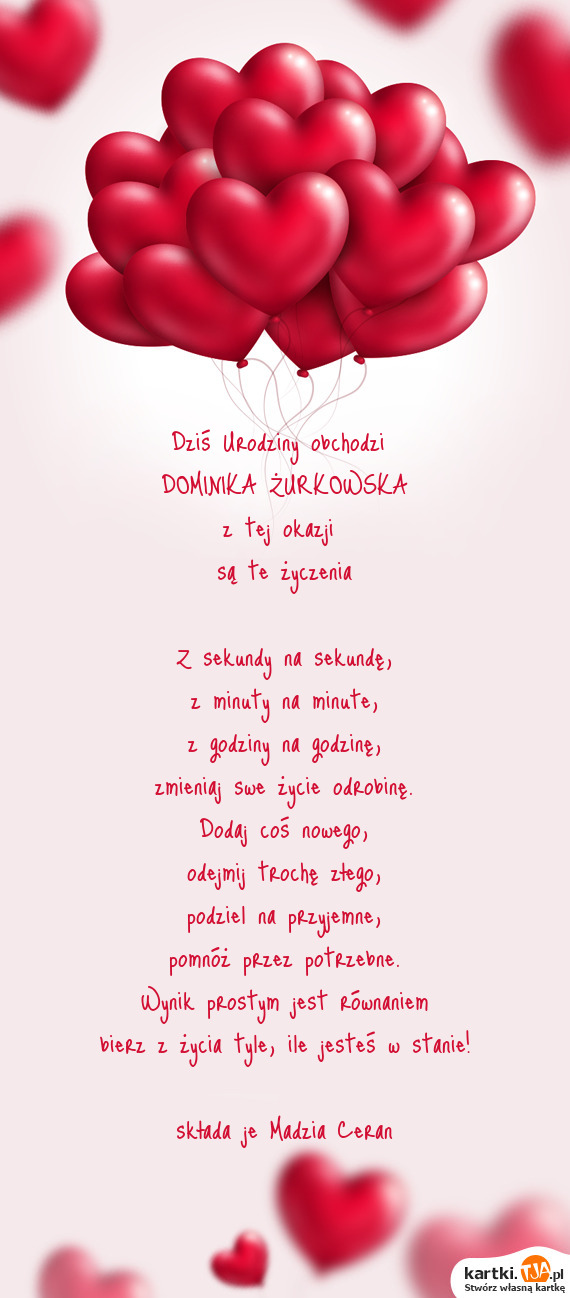 Dziś Urodziny obchodzi
DOMINIKA ŻURKOWSKA
z tej okazji
są te życzenia
Z sekundy na sekundę,
z minuty na minute,
z godziny na godzinę,
zmieniaj swe życie odrobinę.
Dodaj coś nowego,
odejmij trochę złego,
podziel na przyjemne,
pomnóż przez potrzebne.
Wynik prostym jest równaniem
bierz z życia tyle, ile jesteś w stanie!
składa je Madzia Ceran
kartki.TJA.pl
Stwórz własną kartkę